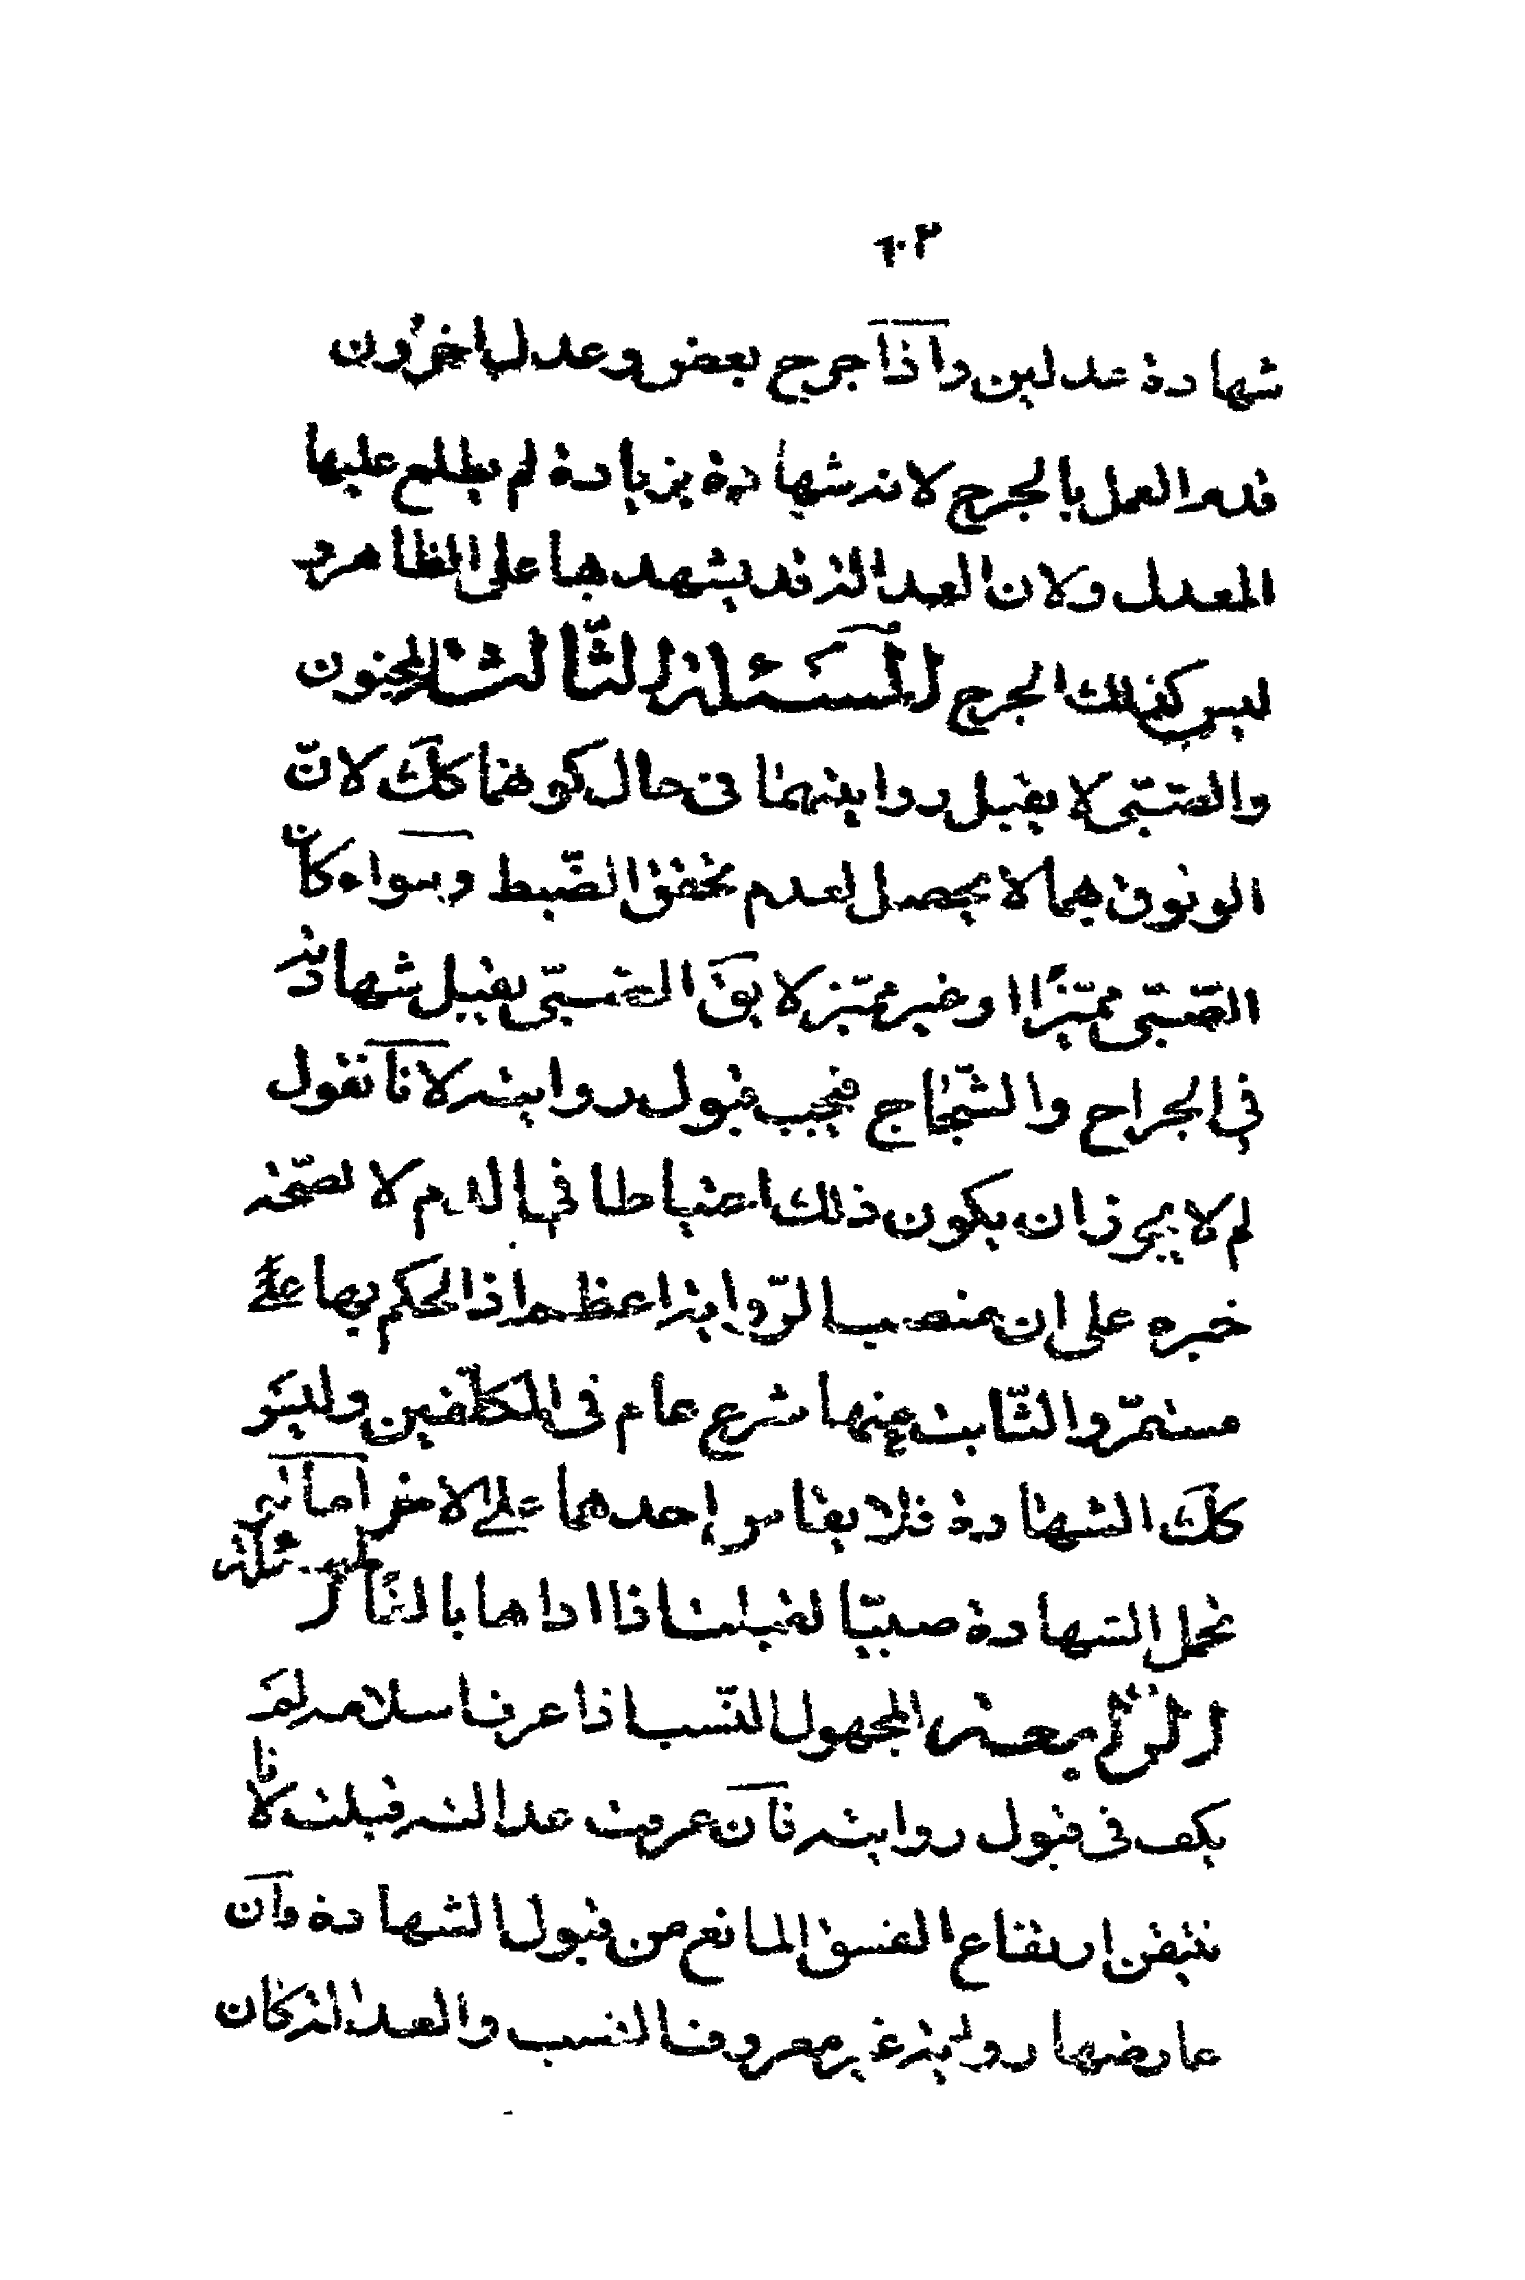 ١٠٣
شهادة عدلين واذا جرح بعض وعدل اخرون
قدم العمل بالجرح لانه شهادة بزيادة لم يطلع عليها
المعدل ولان العدالة قد يشهد بها على الظاهر و
ليس كذلك الجرح المسئلة الثالثة المجنون
والصّبىّ لا يقبل روايتهما فى حال كونهما كك لانّ
الوثوق بهما لا يحصل لعدم تحقق الضّبط وسواء كان
الصّبىّ مميّزًا او غير مميّز لا يق الصّبىّ يقبل شهادته
فى الجراح والشّجاج فيجب قبول روايته لانا نقول
لم لا يجوز ان يكون ذلك احتياطا فى الدم لا لصحّة
خبره على ان منصب الرّواية اعظم اذ الحكم بها على
مستمرّ والثّابت منها شرع عام فى المكلّفين وليس
كك الشهادة فلا يقاس احدهما على الاخر اما لو
تحمل الشهادة صبيّا لقبلت اذا اداها بالغا
الرّابعة المجهول النّسب اذا عرف اسلامه لم
يكف فى قبول روايته فان عرفت عدالته قبلت لانا
نتيقن ارتفاع الفسق المانع من قبول الشهادة وان
عارضها رواية غير معروف النسب والعدالة كان